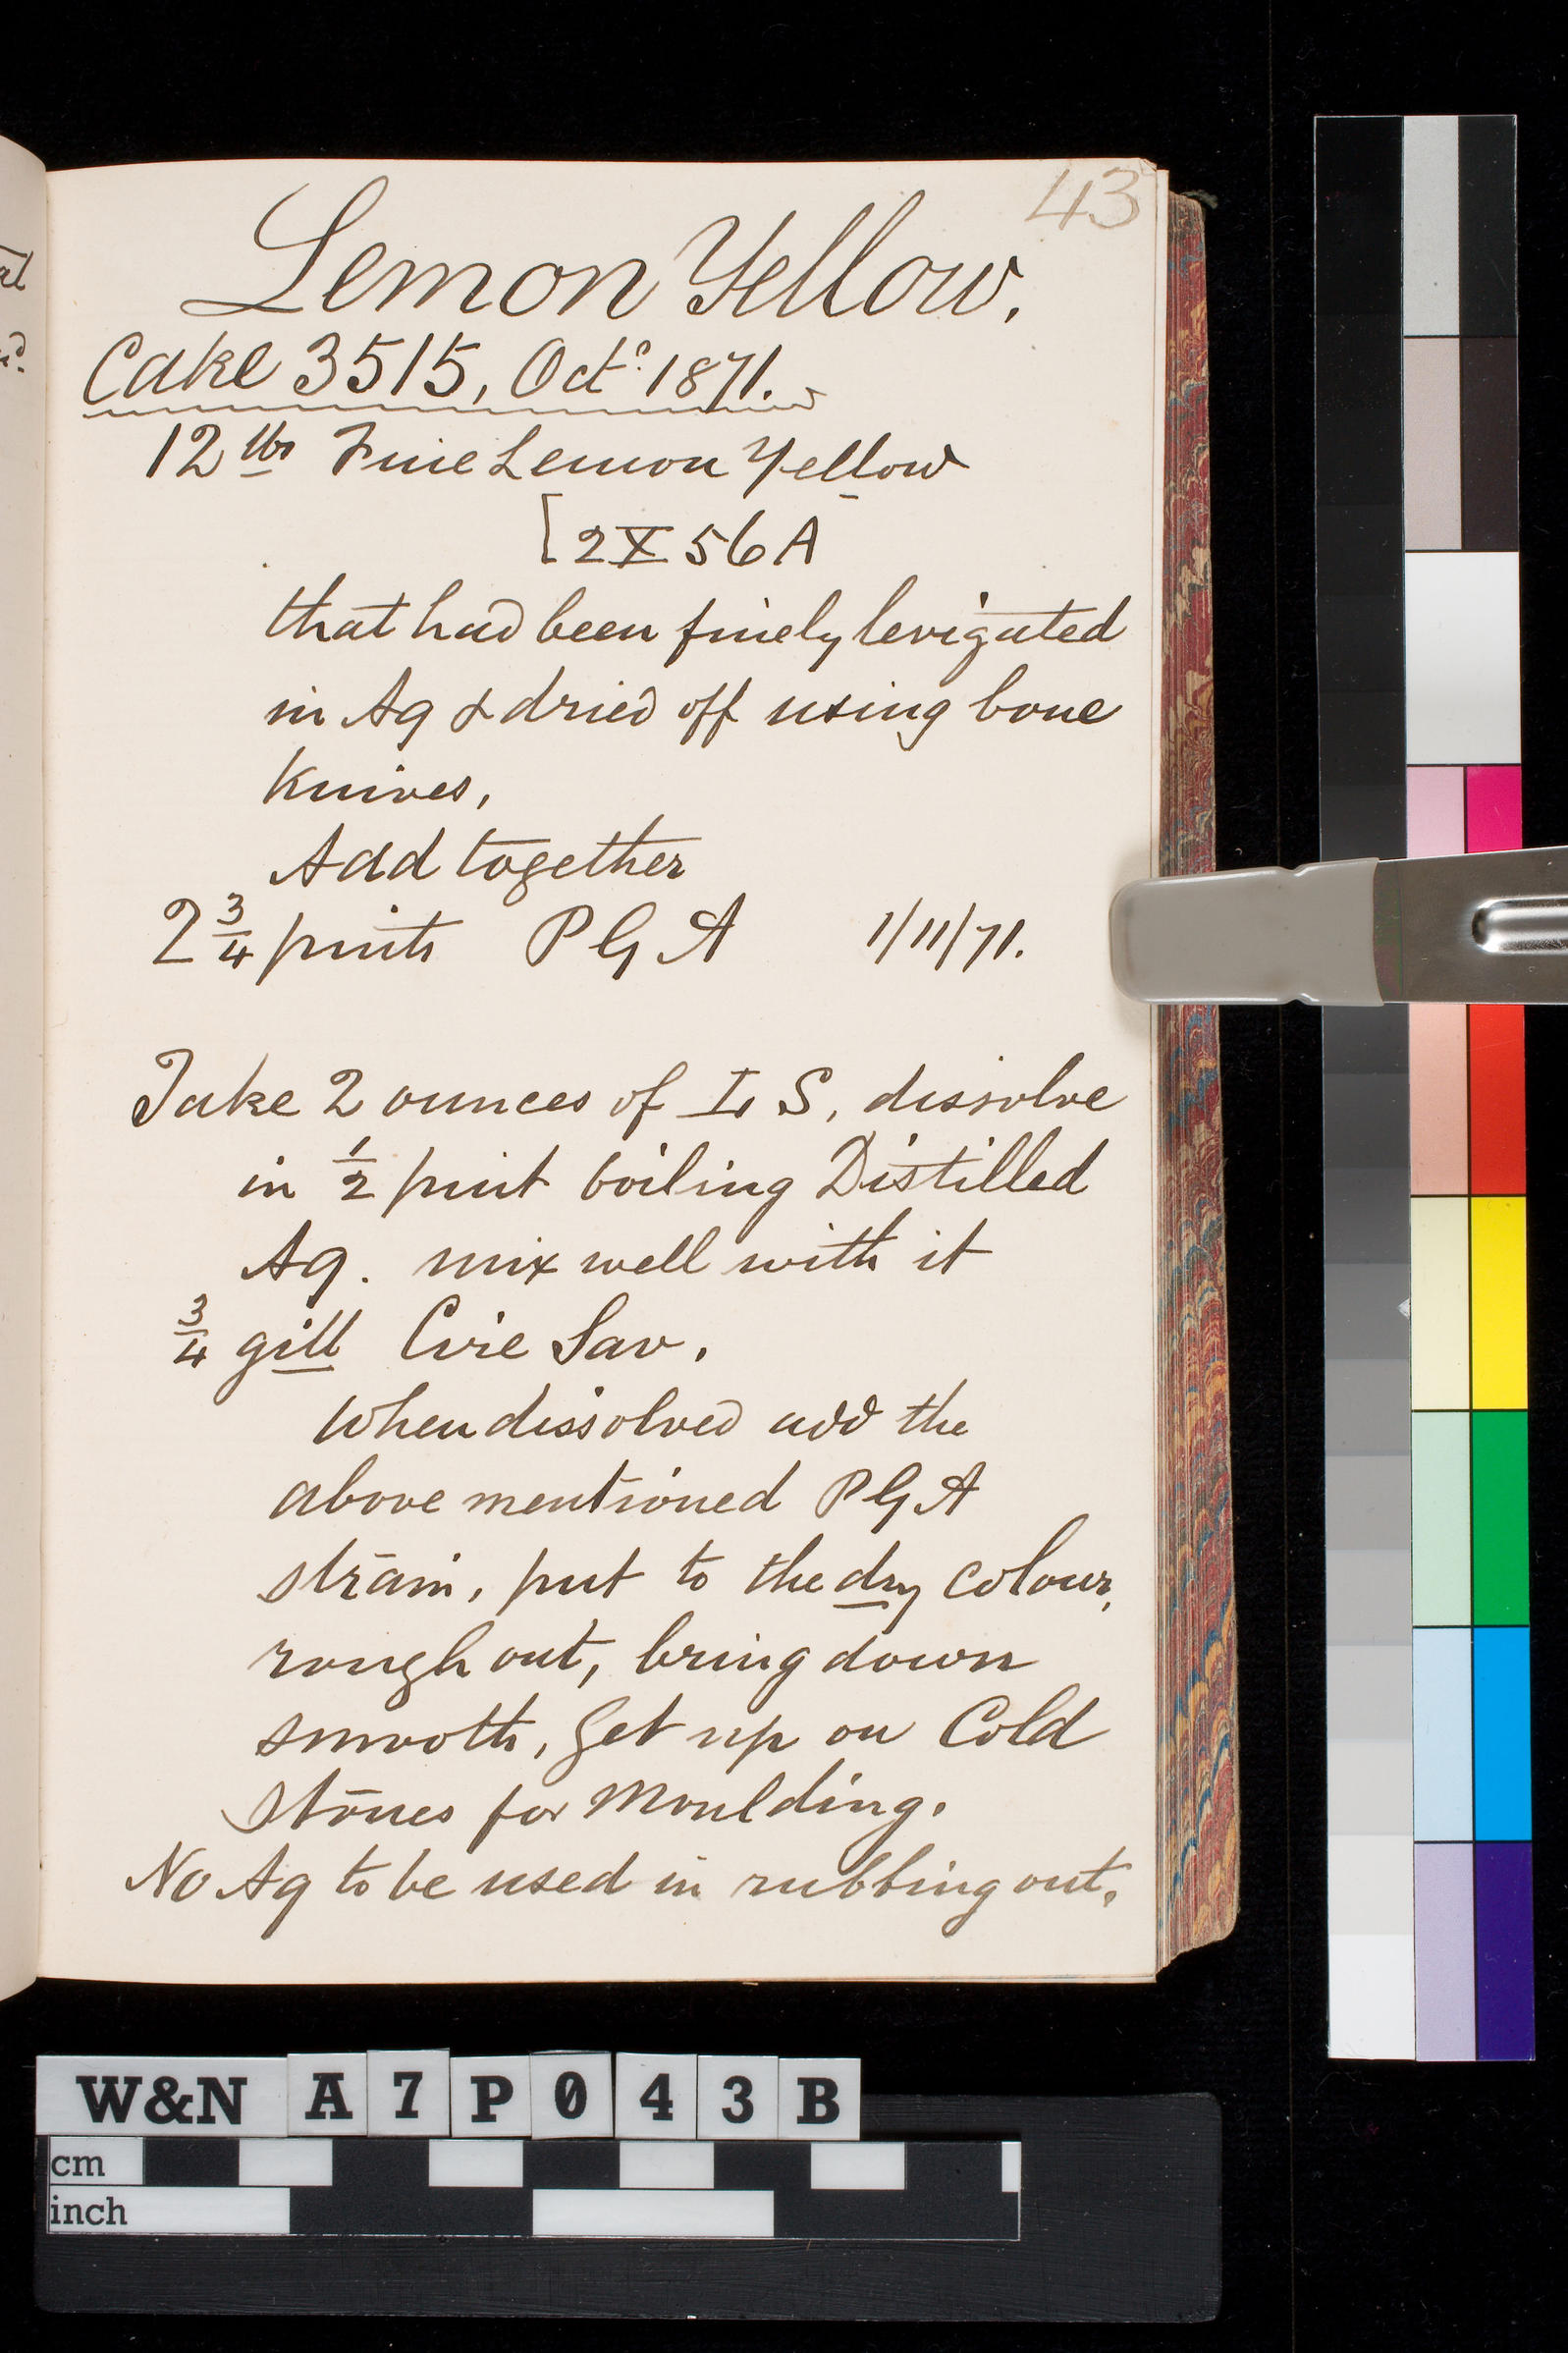 43
Lemon Yellow.
Cake 3515, Octr. 1871.
12 lbs Fine Lemon Yellow
[2X56A
that had been finely levigated
in Aq & dried off using bone
Knives,
Add together
2 3/4 pints PGA 1/11/71.
Take 2 ounces of L S, dissolve
in 1/2 pint boiling Distilled
Aq. mix well with it
3/4 gill Cire Sav.
When dissolved add the
above mentioned PGA
strain, put to the dry colour,
rough out, bring down
smooth, get up on Cold
stones for Moulding.
No Aq to be used in rubbing out.
W&N A7P043B
cm
inch